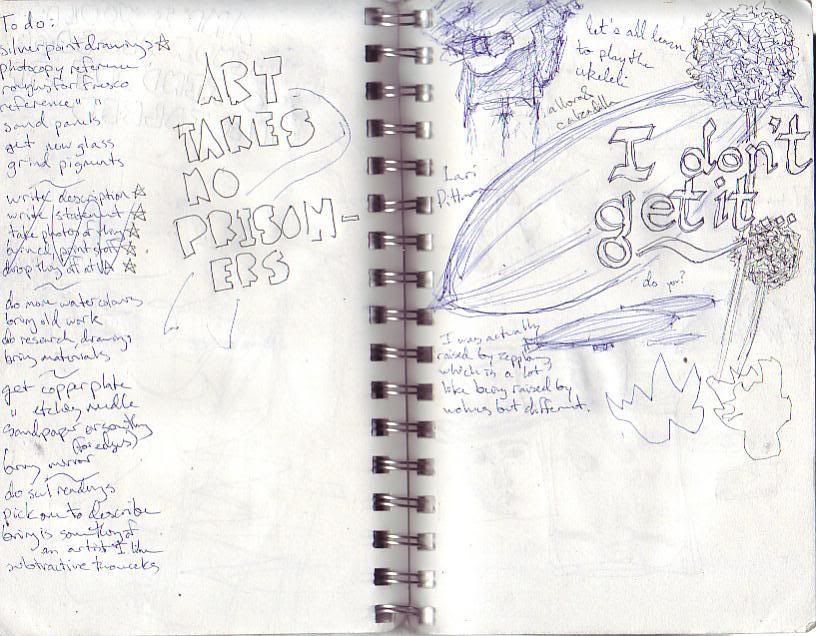 To do:
silverpoint drawings
photocopy reference
roughs for fresco
reference " "
sand panels
get new glass
grind pigments
write description
write statement
take photos of
drop
do more watercolours
bring old work
do research drawings
bring materials
get copper plate
" etching needle
sandpaper or something
(for edges)
bring mirror
do sci readings
pick one to describe
bring is something of
an artist I like
subtractive
ART
TAKES
NO
PRISON-
ERS
let's all learn
to play the
ukeleli
a floral
calendula
Lari
Pittman
I don't
get it
do you?
I was actually
raised by zepplins
which is a lot
like being raised by
wolves but different.